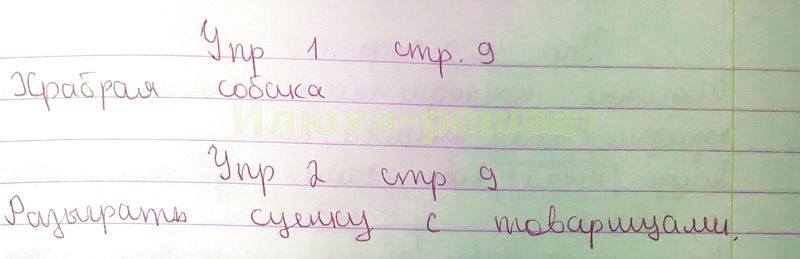 Упр 1 стр. 9
Храбрая собака
Илюха-решает
Упр 2 стр 9
Разыграть сценку с товарищами.